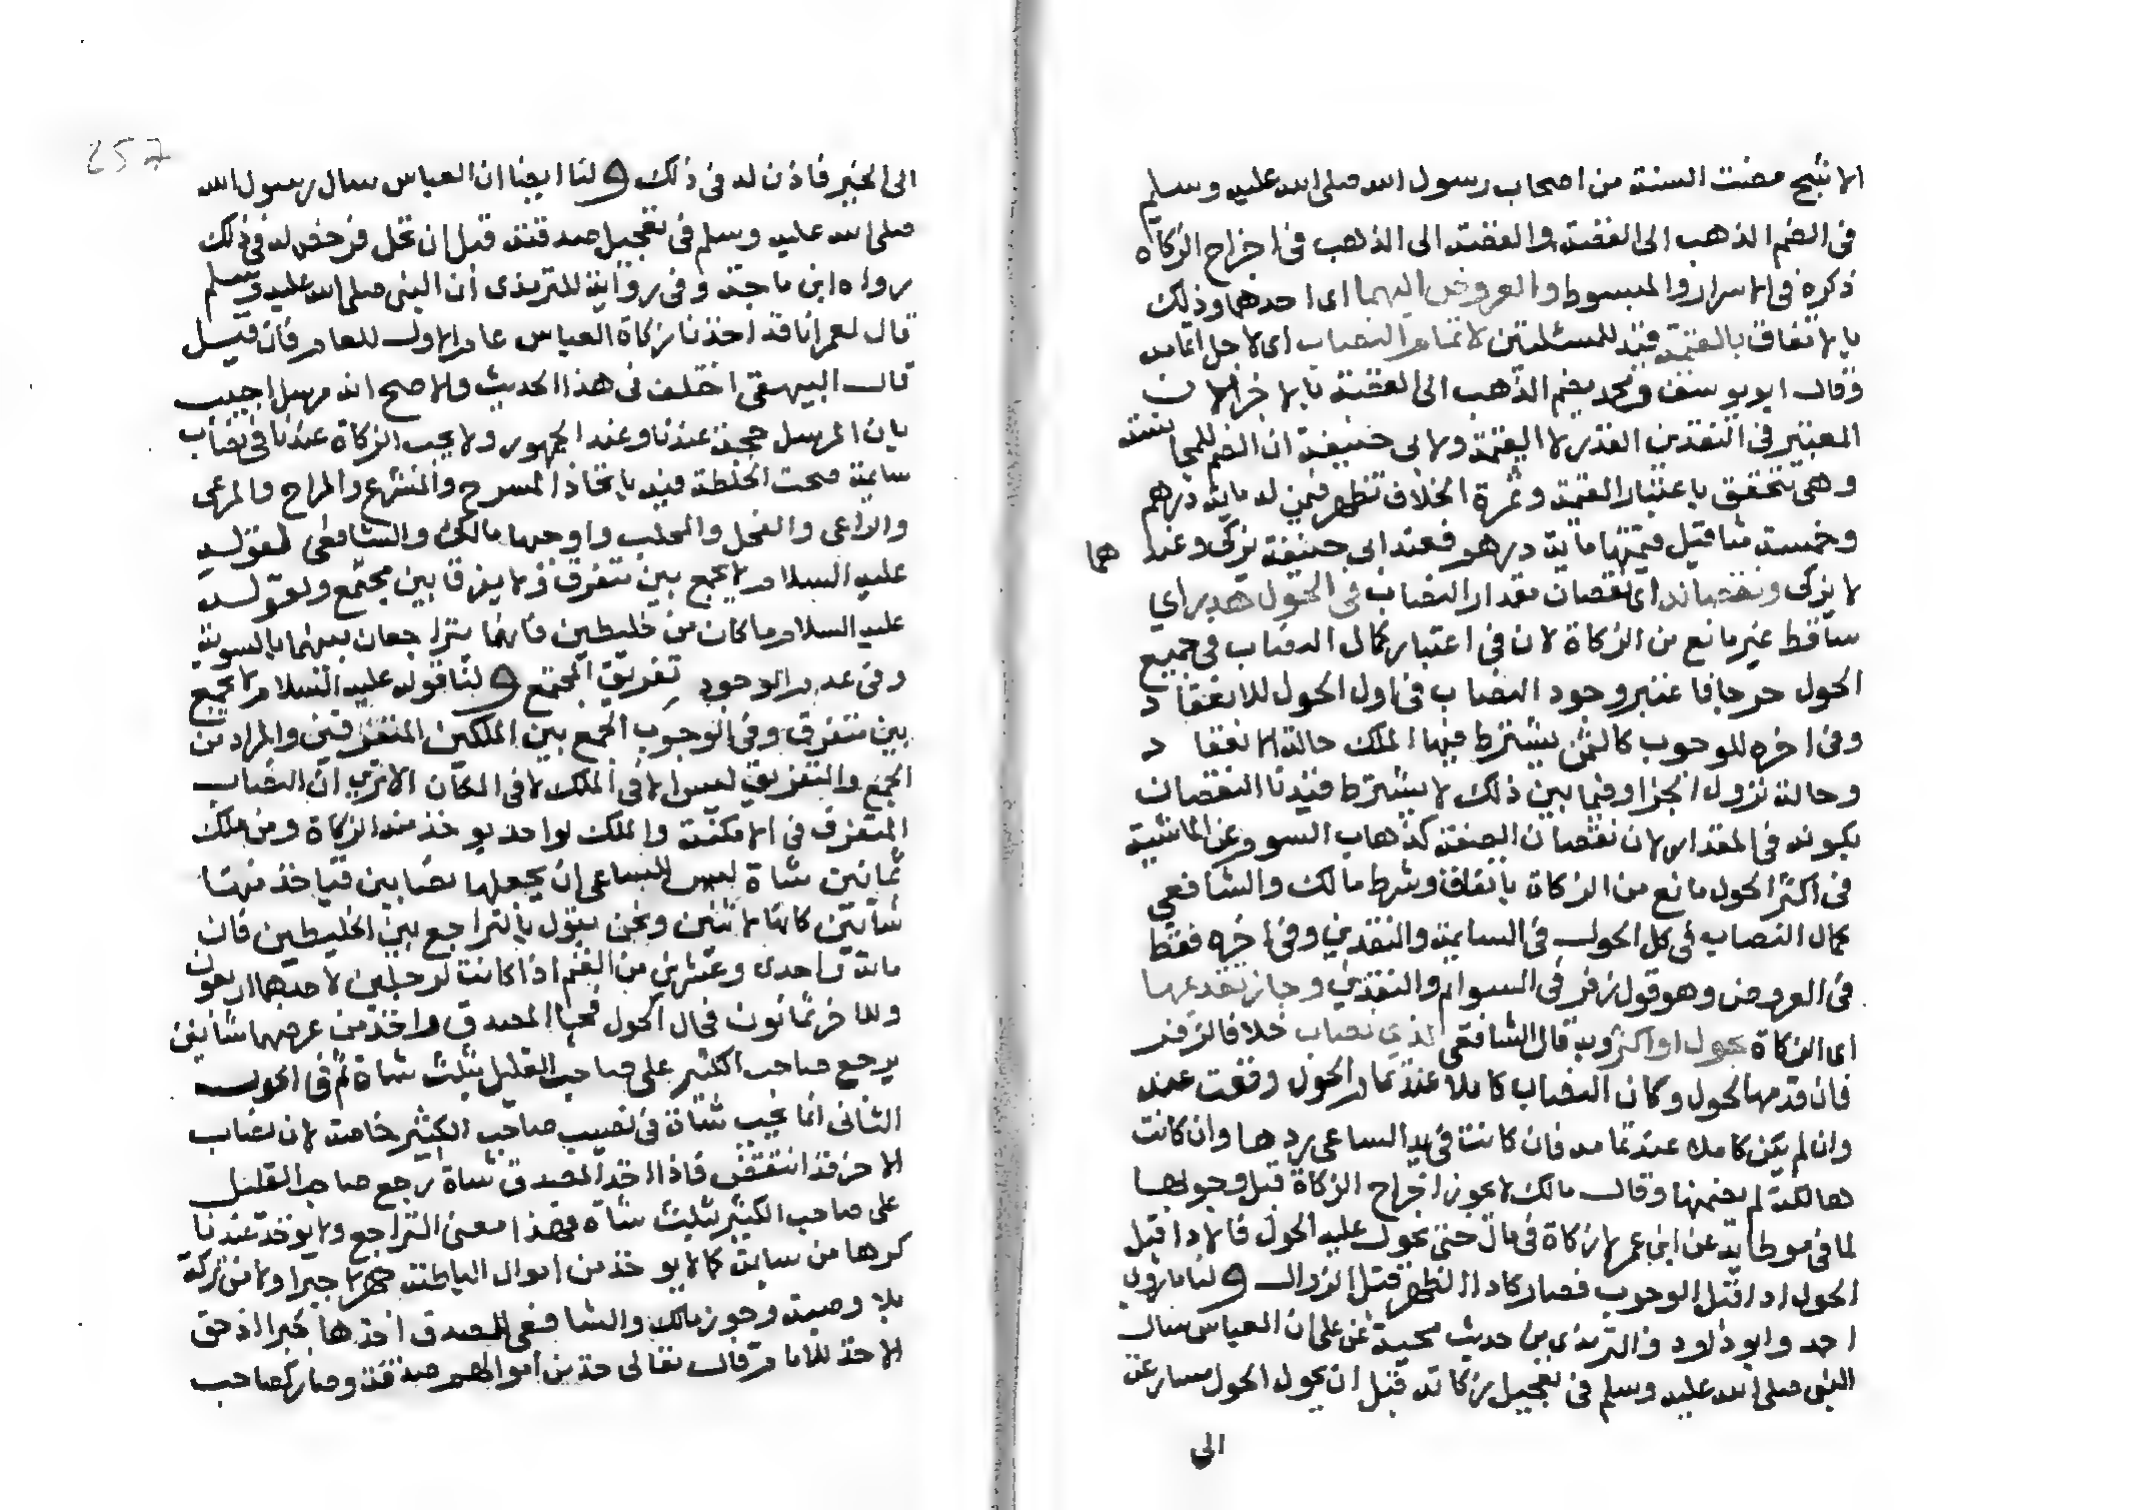 الاشج مضت السنة من اصحاب رسول الله صلى الله عليه وسلم
فى الضم الذهب الى الفضة والفضة الى الذهب فى اخراج الزكاة
ذكره فى الاسرار والمبسوط والعروض اليهما اى احدهما وذلك
بالاتفاق بالقيمة قيد للمسئلتين لاتمام النصاب اى لاجل اتمامه
وقال ابو يوسف ومحمد يضم الذهب الى الفضة بالاجزا لان
المعتبر فى النقدين القدر لا القيمة ولابى حنيفة ان الضم للمجانسة
وهى تتحقق باعتبار القيمة وثمرة الخلاف تظهر فيمن له ماية درهم
وخمسة مثاقيل قيمتها ماية درهم فعند ابى حنيفة يزكى وعندهما
لا يزكى ونقصانه اى نقصان مقدار النصاب فى الحول هدر اى
ساقط غير مانع من الزكاة لان فى اعتبار كمال النصاب فى جميع
الحول حرجا فاعتبر وجود النصاب فى اول الحول للانعقاد
وفى اخره للوجوب كاليمن يشترط فيها الملك حالة الانعقاد
وحالة نزول الجزا وفيما بين ذلك لا يشترط قيدنا النقصان
بكونه فى المقدار لان نقصان الصفة كذهاب السوم عن الماشية
فى اكثر الحول مانع من الزكاة باتفاق وشرط مالك والشافعي
كمال النصاب فى كل الحول فى السايمة والنقدين وفى اخره فقط
فى العروض وهو قول زفر فى السوايم والنقدين وجاز تقديمها
اى الزكاة بحول او اكثر وبه قال الشافعى لذى نصاب خلافا لزفر
فان قدمها لحول وكان النصاب كاملا عند تمام الحول وقعت عنه
وان لم يكن كاملا عند تمامه فان كانت فى يد الساعى ردها وان كانت
هالكة لم يضمنها وقال مالك لا يجوز اخراج الزكاة قبل وجوبها
لما فى موطايه عن ابن عمر لا زكاة فى مال حتى يحول عليه الحول فالادا قبل
الحول ادا قبل الوجوب فصار كادا الظهر قبل الزوال ولنا ما روى
احمد وابو داود والترمذى من حديث عن على ان العباس سال
النبى صلى الله عليه وسلم فى تعجيل زكاته قبل ان يحول الحول مسارعة
الى
257
الى الخير فاذن له فى ذلك ولنا ايضا ان العباس سال رسول الله
صلى الله عليه وسلم فى تعجيل صدقته قبل ان تحل فرخص له فى ذلك
رواه ابن ماجة وفى رواية للترمذى ان النبى صلى الله عليه وسلم
قال لعمر انا قد اخذنا زكاة العباس عام الاول للعام فان قيل
قال البيهقى اختلف فى هذا الحديث والاصح انه مرسل اجيب
بان المرسل حجة عندنا وعند الجمهور ولا يجب الزكاة عندنا فى نصاب
سايمة صحت الخلطة فيه باتحاذ المسرح والمشرع والمراح والمرعى
والراعى والفحل والمحلب واوجبها مالك والشافعى لقوله
عليه السلام لا يجمع بين متفرق ولا يفرق بين مجتمع ولقوله
عليه السلام ما كان من خليطين فانهما يتراجعان بينهما بالسوية
وفى عدم الوجوب تفريق المجتمع ولنا قوله عليه السلام لا يجمع
بين متفرق وفى الوجوب الجمع بين الملكين المتفرقين والمراد من
الجمع والتفريق ليس الا فى الملك لا فى المكان الا ترى ان النصاب
المتفرق فى الامكنة والملك لواحد يوخذ منه الزكاة ومن ملك
ثمانين شاة ليس للساعى ان يجعلها نصابين فياخذ منها
شاتين كانها لاثنين ونحن نقول بالتراجع بين الخليطين فان
ماية واحدى وعشرين من الغنم اذا كانت لرجلين لاحدهما اربعون
وللاخر ثمانون فحال الحول فجا المصدق واخذ من عرضها شاتين
يرجع صاحب الكثير على صاحب القليل بثلث شاة ثم فى الحول
الثانى انما يجب شاة فى نصيب صاحب الكثير خاصة لان نصاب
الاخر قد انتقض فاذا اخذ المصدق شاة رجع صاحب القليل
على صاحب الكثير بثلث شاة فهذا معنى التراجع ولا يوخذ عندنا
كرها من سايمة كما لا يوخذ من اموال الباطنة جبرا ولا من تركة
بلا وصية وجوز مالك والشافعى للمصدق اخذها جبرا اذ حق
الاخذ للامام قال تعالى خذ من اموالهم صدقة وصار كصاحب